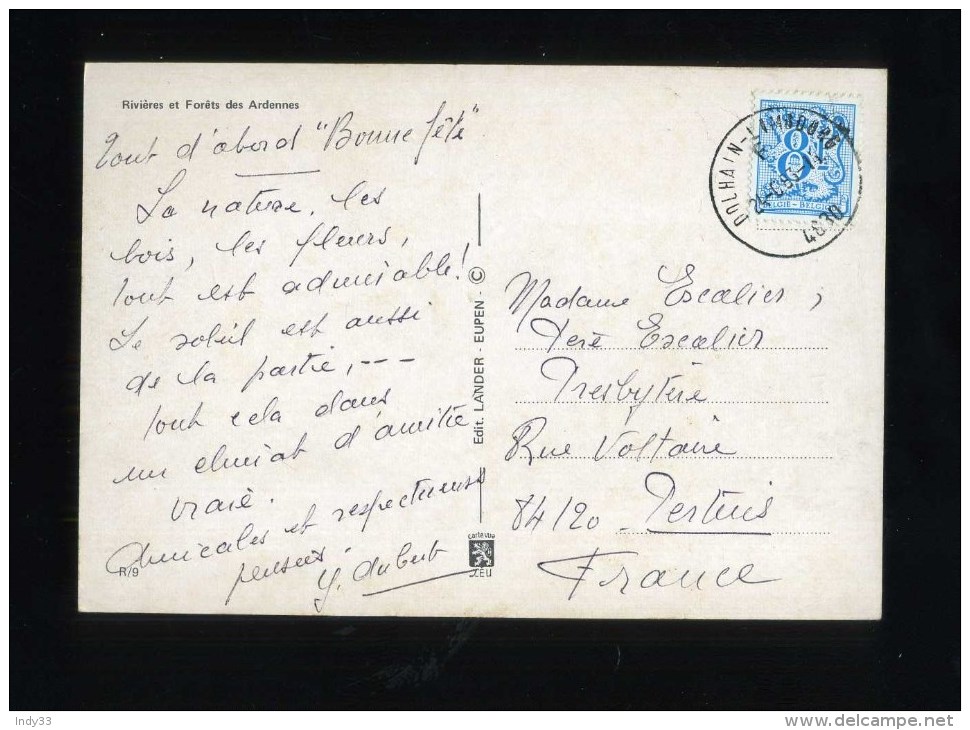 Rivières et Forêts des Ardennes
Tout d'abord "Bonne fête"
La nature, les
bois, les fleurs,
tout est admirable!
Le soleil est aussi
de la partie, ---
tout cela dans
un climat d'amitié
vraie.
Amicales et respectueuses
pensées.
R/9
Edit. LANDER - EUPEN - ©
carte vue
DOLHAIN-LIMBOURG
4830
8F
BELGIE - BELGIQUE
Madame Escalier,
Père Escalier
Presbytère
Rue Voltaire
84120 Pertuis
France
Indy33
delcampe.net